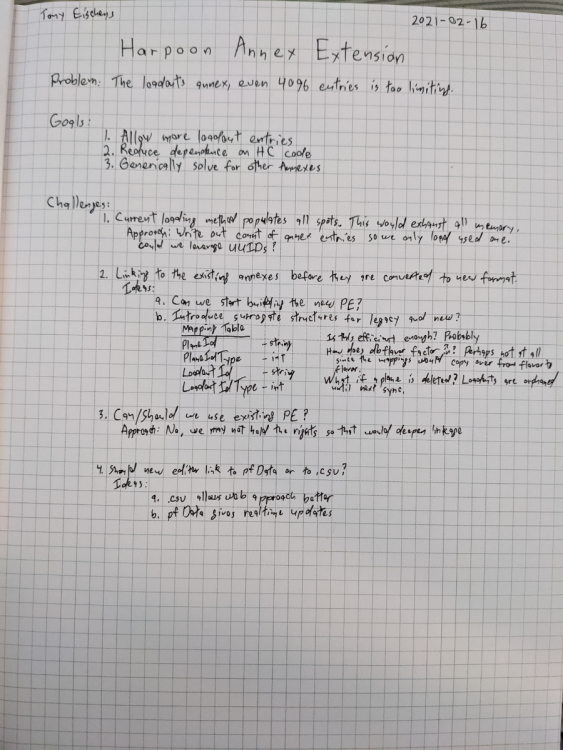 Tony Eischens
2021-02-16
Harpoon Annex Extension
Problem: The loadouts annex, even 4096 entries is too limiting.
Goals:
1. Allow more loadout entries
2. Reduce dependence on HC code
3. Generically solve for other Annexes
Challenges:
1. Current loading method populates all spots. This would exhaust all memory.
Approach: Write out count of annex entries so we only load used one.
Could we leverage UUIDs?
2. Linking to the existing annexes before they are converted to new format.
Ideas:
a. Can we start building the new PE?
b. Introduce surrogate structures for legacy and new?
Mapping Table
PlaneId - string
PlaneIdType - int
LoadoutId - string
LoadoutIdType - int
Is this efficient enough? Probably
How does dbflavor factor in? Perhaps not at all
since the mappings would copy over from flavor to
flavor.
What if a plane is deleted? Loadouts are orphaned
until next sync.
3. Can/Should we use existing PE?
Approach: No, we may not hold the rights so that would deepen linkage
4. Should new editor link to pfData or to .csv?
Ideas:
a. .csv allows web approach better
b. pfData gives realtime updates